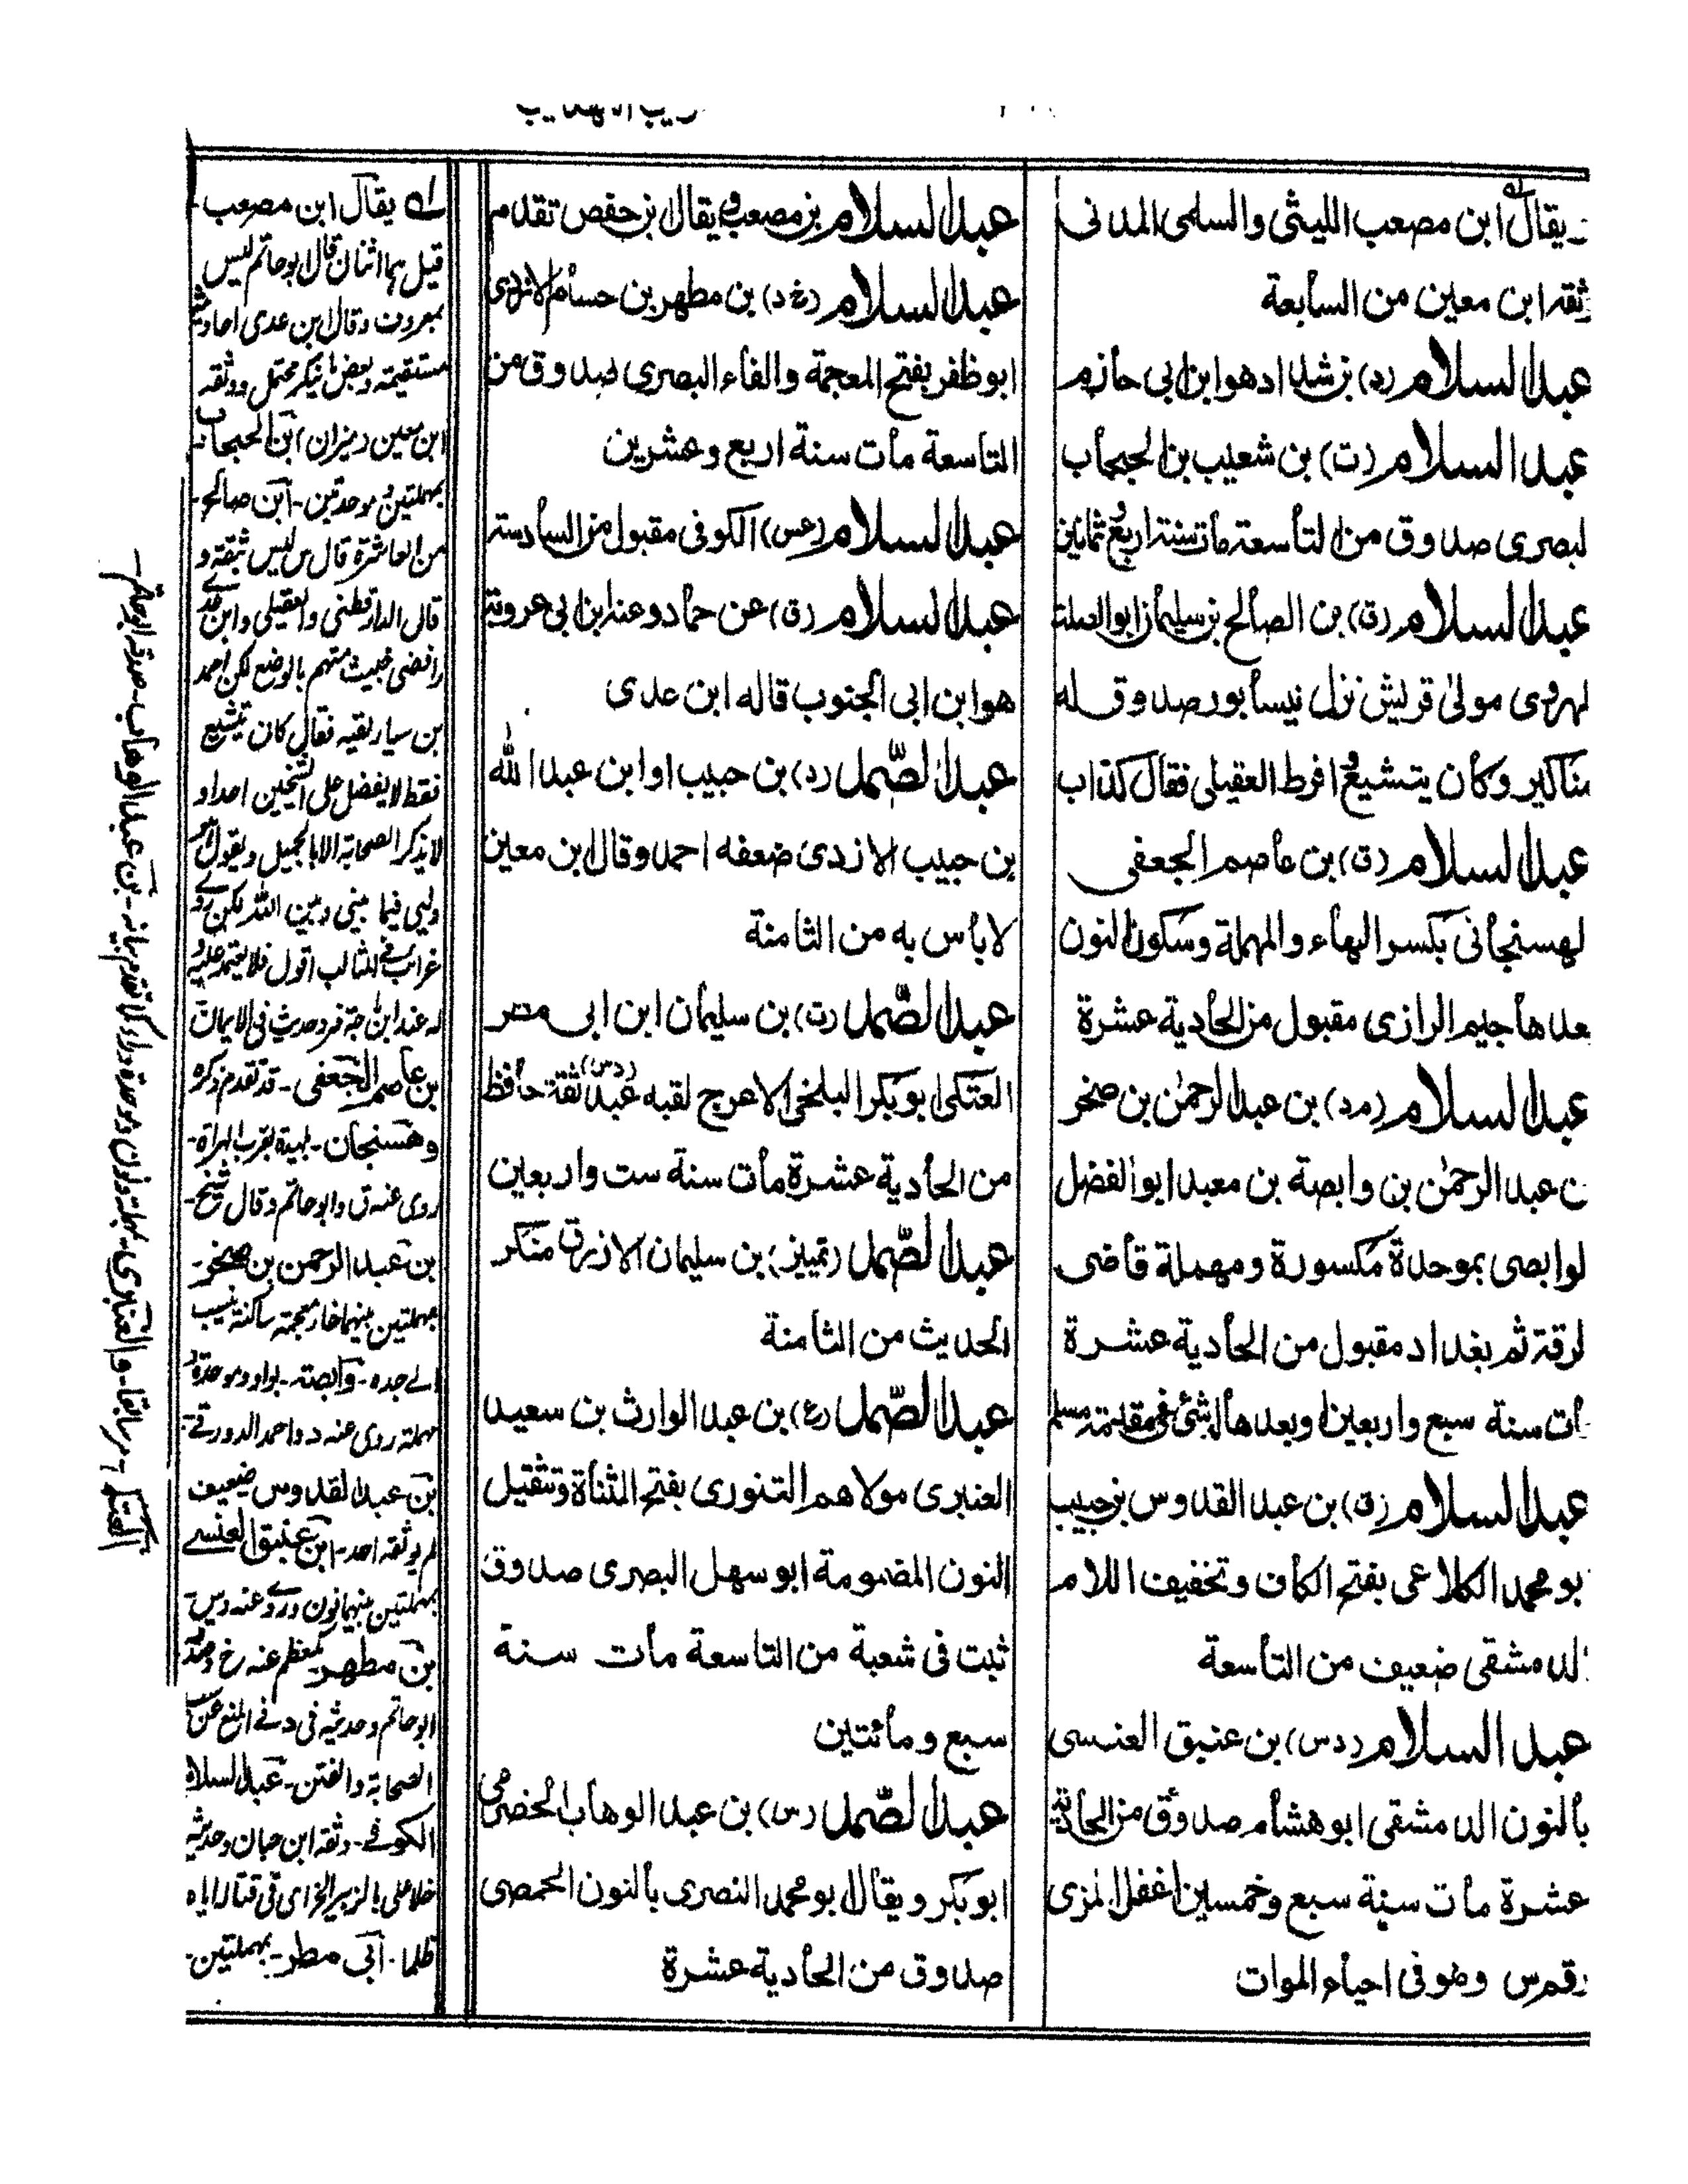 يقال ابن مصعب الليثى والسلمى المدنى
ثقه ابن معين من السابعة
عبد السلام (د) بن شداد هو ابن ابى حازم
عبد السلام (ت) بن شعيب بن الحبحاب
لبصرى صدوق من التاسعة مات سنة اربع وثمانين
عبد السلام (ق) بن الصالح بن سليمان ابو الصلت
لهروى مولى قريش نزل نيسابور صدوق له
مناكير وكان يتشيع وافرط العقيلى فقال كذاب
عبد السلام (ق) بن عاصم الجعفى
لهسنجانى بكسر الهاء والمهملة وسكون النون
بعدها جيم الرازى مقبول من الحادية عشرة
عبد السلام (مد) بن عبد الرحمٰن بن صخر
ن عبد الرحمٰن بن وابصة بن معبد ابو الفضل
لوابصى بموحدة مكسورة ومهملة قاضى
لرقة ثم بغداد مقبول من الحادية عشرة
ات سنة سبع واربعين وبعدها لشئ فى مقدمة مسلم
عبد السلام (ق) بن عبد القدوس بن حبيب
بو محمد الكلاعى بفتح الكاف وتخفيف اللام
الدمشقى ضعيف من التاسعة
عبد السلام (دس) بن عنبق العنسى
بالنون الدمشقى ابو هشام صدوق من الحادية
عشرة مات سنة سبع وخمسين اغفل المزى
رقم س وهو فى احياء الموات
عبد السلام بن مصعب ويقال بن حفص تقدم
عبد السلام (خ د) بن مطهر بن حسام الازدى
ابو ظفر بفتح المعجمة والفاء البصرى صدوق من
التاسعة مات سنة اربع وعشرين
عبد السلام (عس) الكوفى مقبول من السادسة
عبد السلام (ق) عن حماد وعنه ابن ابى عروبة
هو ابن ابى الجنوب قاله ابن عدى
عبد الصّمد (د) بن حبيب او ابن عبد الله
بن حبيب الازدى ضعفه احمد وقال ابن معين
لا باس به من الثامنة
عبد الصّمد (ت) بن سليمان ابن ابى مطر
العتكى ابو بكر البلخى الاعرج لقبه عبد (دس) ثقة حافظ
من الحادية عشرة مات سنة ست واربعين
عبد الصّمد (تمييز) بن سليمان الازرق منكر
الحديث من الثامنة
عبد الصّمد (ع) بن عبد الوارث بن سعيد
العنبرى مولاهم التنورى بفتح المثناة وتثقيل
النون المضمومة ابو سهل البصرى صدوق
ثبت فى شعبة من التاسعة مات سنة
سبع ومائتين
عبد الصّمد (س) بن عبد الوهاب الحضرمى
ابو بكر ويقال ابو محمد النصرى بالنون الحمصى
صدوق من الحادية عشرة
له يقال ابن مصعب
قيل هما اثنان قال ابو حاتم ليس
بمعروف وقال ابن عدى احاديثه
مستقيمة وبعضها ينكر محتمل ووثقه
ابن معين وميزان ابن الحبحاب
بمهملتين وموحدتين - ابن صالح -
من العاشرة قال س ليس بثقة و
قال الدارقطنى والعقيلى وابن عدى
رافضى خبيث متهم بالوضع لكن احمد
بن سيار لقيه فقال كان يتشيع
فقط لا يفضل على الشيخين احدا و
لا يذكر الصحابة الا بالجميل ويقول
دينى فيما بينى وبين الله لكن روى
غرائب فى المثالب اقول فلا يعتمد عليه
له عند ابن ماجة فرد حديث فى الايمان
بن عاصم الجعفى - قد تقدم ذكره
وهسنجان - قرية بقرب الهراة -
روى عنه ق وابو حاتم وقال شيخ -
بن عبد الرحمن بن صخر -
بمهملتين بينهما خاء معجمة ساكنة ينسب
الى جده - وابصة - بواو وموحدة و
مهملة روى عنه د واحمد الدورقى -
بن عبد القدوس ضعيف
لم يوثقه احد - ابن عنبق العنسى
بمهملتين بينهما نون وروى عنه دس -
بن مطهر كمعظم عنه خ د
ابو حاتم وحديثه فى د فى المنع عن سب
الصحابة والفتن - عبد السلام
الكوفى - وثقه ابن حبان وحديثه
خلا على بالزبير فى قتاله اياه
ظلما - ابى مطر - بمهملتين -